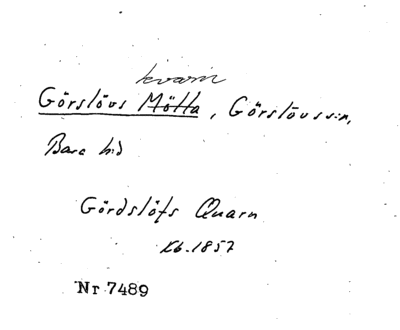 kvarn
Görslövs Mölla, Görslövs s:n,
Bara hd
Gördslöfs Quarn
Kb. 1857
Nr 7489